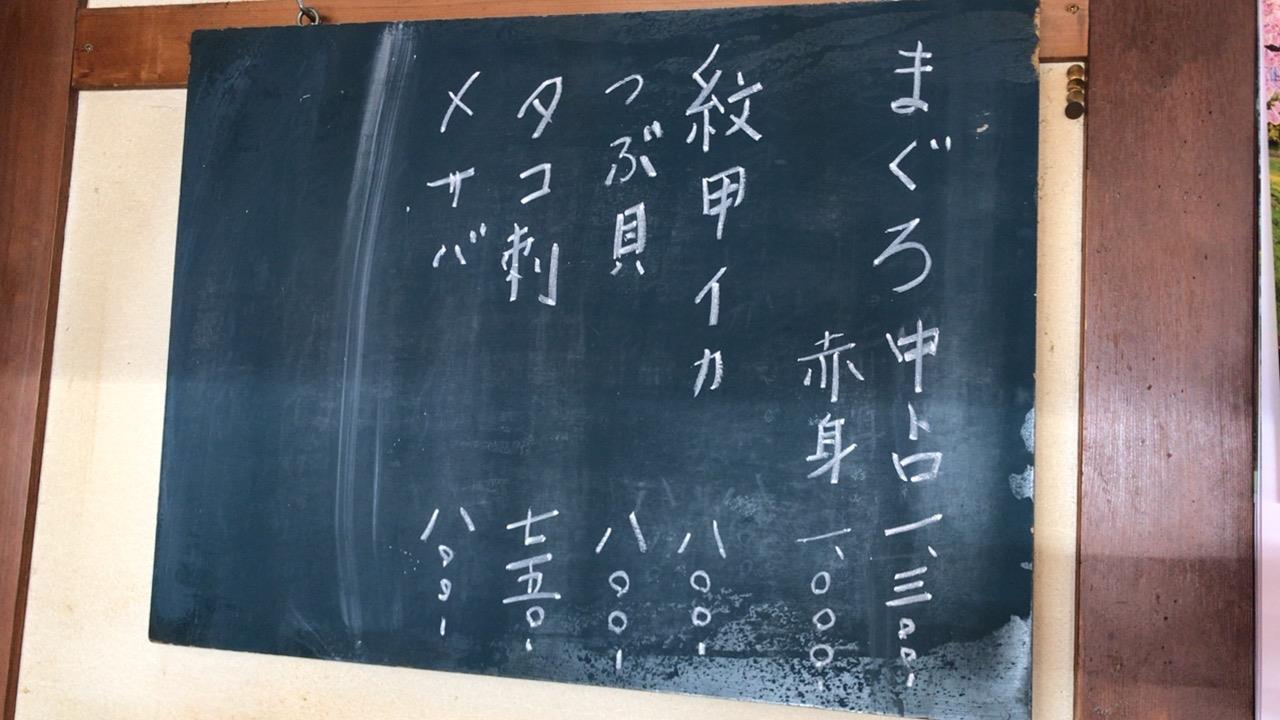 まぐろ中トロ一、三〇〇-
赤身一、〇〇〇-
紋甲イカ八〇〇-
つぶ貝八〇〇-
タコ刺七五〇-
〆サバ八〇〇-